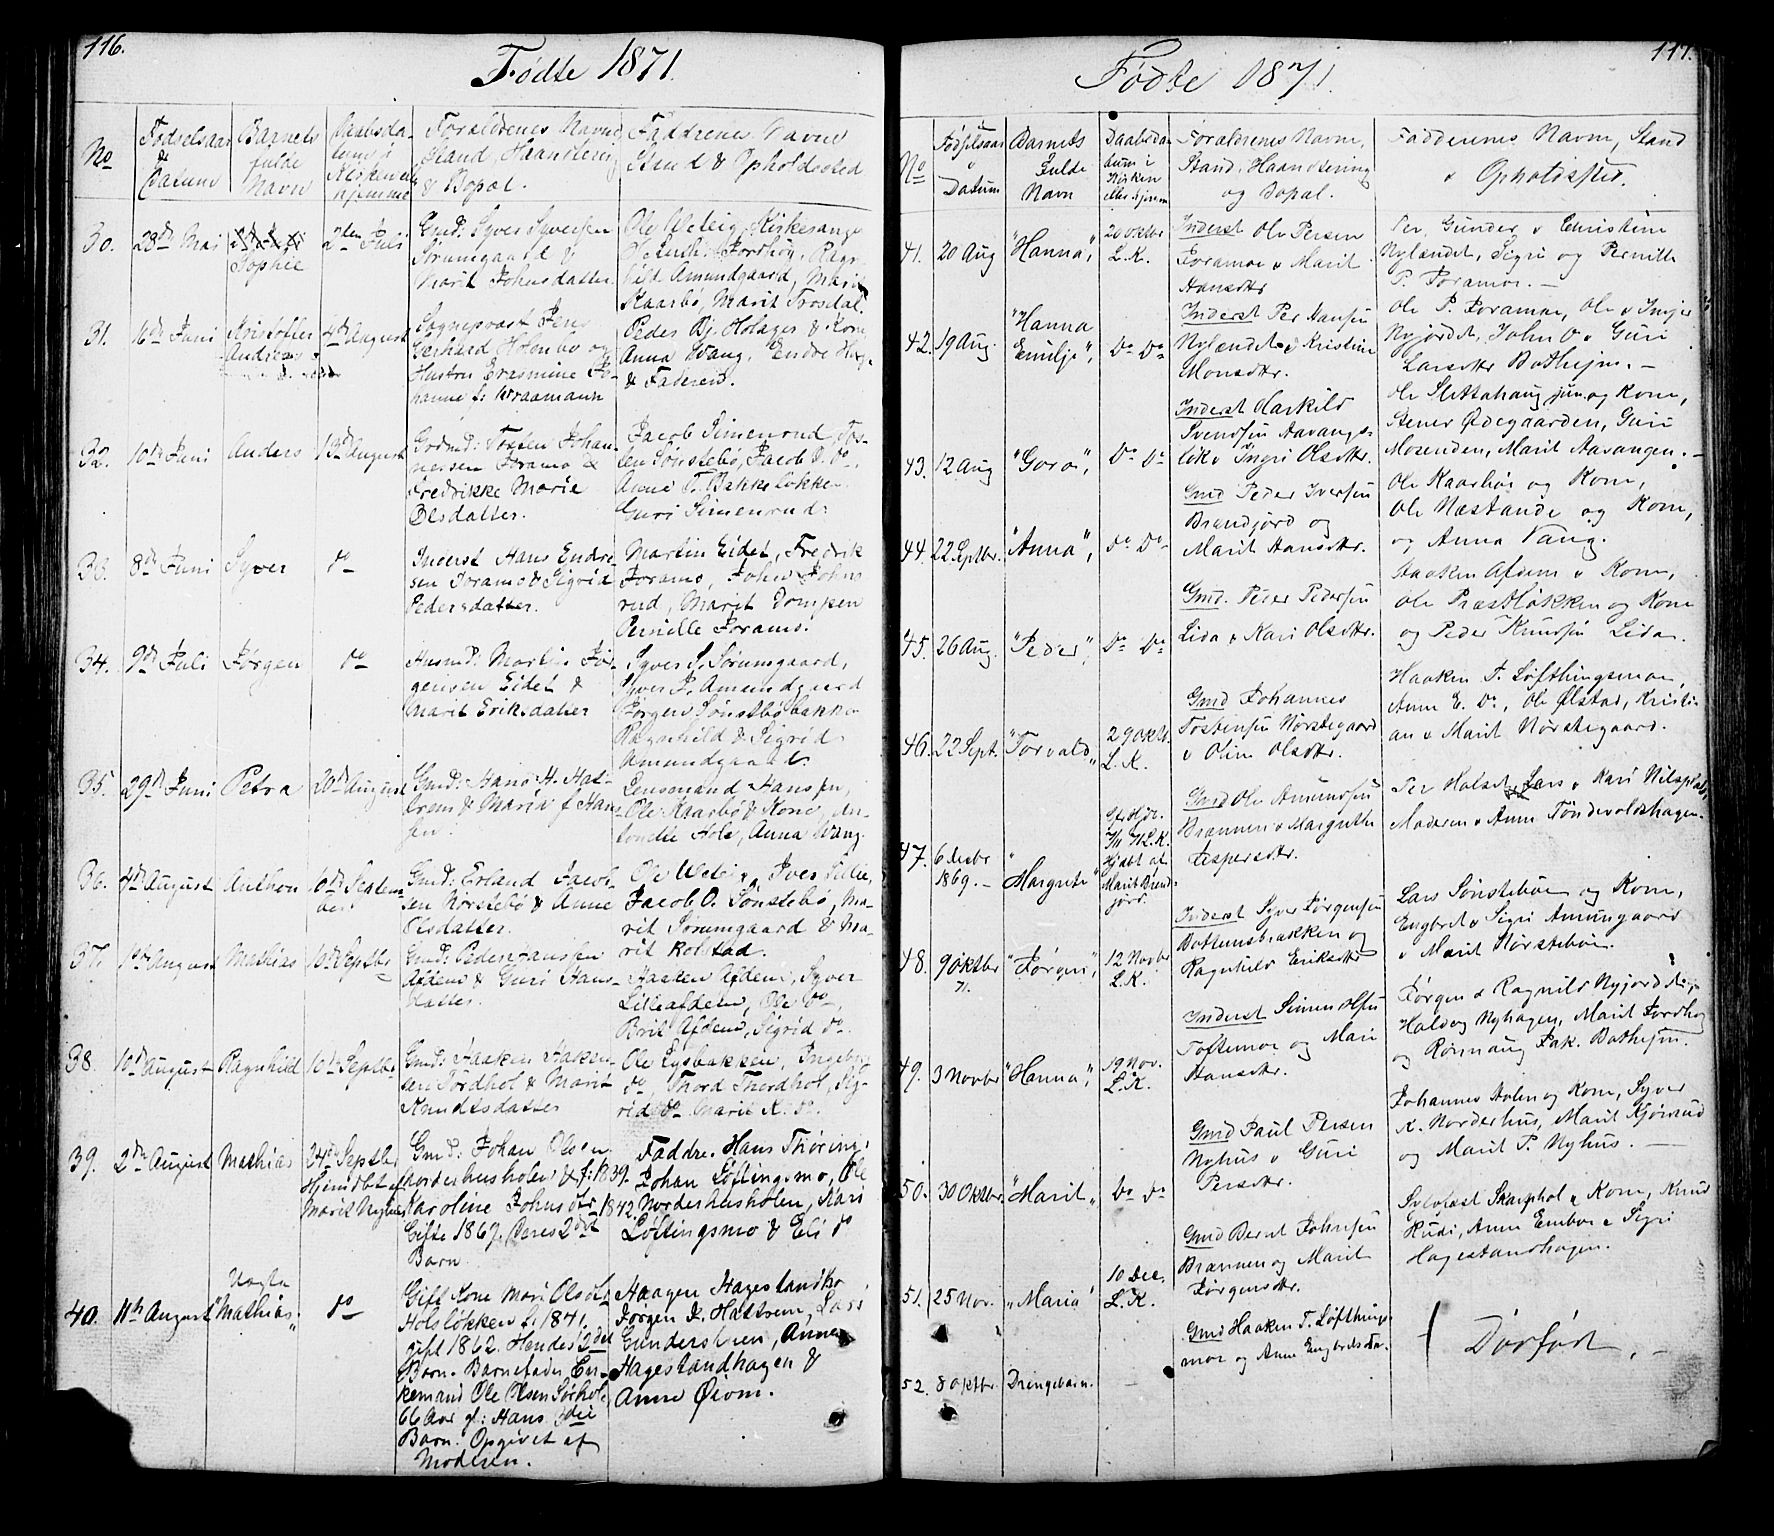 116.
Fødte 1871.
No
Fødselsaar
&
Datum
Barnets
fulde
Navn
Daabsda-
tum i
Kirken ell.
hjemme
Forældrenes Navne
Stand, Haandtering
& Bopæl.
Faddrenes Navne
Stand & Opholdssted
30.
28de Mai
Sophie
2den Juli
Gmd: Syver Syversen
Sørumgaard &
Marit Johnsdatter
Amundgaard, Marit
Kaarbø, Marit Trosdal.
31.
16de Juni
Kristoffer
Andreas
4de August
Sogneprest Jens
Gerhard Holmbo og
Hustru Erasmine Jo-
hanne f: Kraamann
Peder Bj. Holager & Kone
Anna Wang, Endre
& Faderen.
32.
10de Juni
Anders
13de August
Gmd: Tosten Johan-
nessen Joramo &
Fredrikke Marie
Olsdatter.
Jacob Simenrud, Tos-
ten Sønstebø, Jacob S. do,
Anne P. Bakkeløkken
Guri Simenrud.
33.
8de Juni
Syver
do
Inderst Hans Endre-
sen Joramo & Sigrid
Pedersdatter.
Martin Eidet, Fredrik
Joramo, John Johns-
rud, Marit Dompen
Pernille Joramo.
34.
9de Juli
Jørgen
do
Husmd: Martin Jør-
gensen Eidet &
Marit Eriksdatter
Syver S. Sørumgaard,
Syver P. Amundgaard
Jørgen Sønstebøbakken
Ragnhild & Sigrid
Amundgaard.
35.
29de Juni
Petra
20de August
Gmd: Hans H. Hat-
trem & Maria f. Han-
sen.
Lensmand Hansen,
Ole Kaarbø & Kone, An-
tonette Hole, Anna Wang.
36.
4de August
Anthon
10de Septem-
ber
Gmd: Erland Jacob-
sen Nørstebø & Anne
Olsdatter.
Jacob O. Sønstebø, Ma-
rit Sørumgaard & Ma-
rit Kolstad.
37.
1ste August
Mathias
10de Septbr
Gmd: Peder Hansen
Afdem & Guri Hans-
datter.
Haaken Afdem, Syver
Lilleafdem, Ole do,
Brit Afdem, Sigrid do.
38.
10de August
Ragnhild
10de Septbr
Gmd: Haaken Haken-
sen Tordhol & Marit
Knudtsdatter
Ole Lysbakken, Ingeborg
do, Thord Thordhol, Sig-
rid do Marit K. do.
39.
2den August
Mathias
24de Septbr
Hjemdøbt af
Marit Nyhus
Gmd: Johan Olsen
Norderhusholen & f: 1839.
Karoline Johnsdtr, 1842.
Gifte 1867. Deres 2det
Barn.
Faddre. Hans Thøring,
Johan Løftingsmo, Ole
Norderhusholen, Kari
Løftingsmo & Eli do
40.
11te August
Uægte
"Mathias"
do
Gift Kone Mari Olsdtr
Holsløkken f. 1841.
gift 1862. Hendes 2det
Barn. Barnefader En-
kemand Ole Olsen Sørhol-
66 Aar gl: Hans 3die
Barn. Opgivet af
Moderen.
Haagen Hagestandho
Jørgen J. Hattrem, Lars
Gunderstuen, Anne
Hagestandhagen &
Anne Øiom.
117.
Fødte 1871.
No
Fødselsaar
&
Datum
Barnets
Fulde
Navn
Daabsda-
tum i
Kirken
eller hjemme
Forældrenes Navne,
Stand, Haandtering
og Bopæl.
Faddernes Navne, Stand
& Opholdssted.
41.
20 Aug
"Hanna",
20 Oktbr
L.K.
Inderst Ole Persen
Joramoe & Marit
Hansdtr
Per, Gunder & Christine
Nylændet, Sigri og Pernille
P. Joramoe. —
42.
19 Aug.
"Hanna
Emilje",
Do Do
Inderst Per Hansen
Nylændet & Kristine
Monsdtr.
Ole P. Joramoe, Ole & Inger
Nyjordet, John O. & Guri
Larsdtr Bothejm. —
43.
12 Aug
"Goro",
Do Do
Inderst Haskild
Svendsen Aavangs-
løk & Ingri Olsdtr.
Ole Slettahaug jun. og Kone,
Stener Ødegaarden, Guri
Mosenden, Marit Aavangen. —
44.
22 Septbr.
"Anna",
Do Do
Gmd Peder Iversen
Brandjord og
Marit Hansdtr.
Ole Kaarbøe og Kone,
Ole Næstande og Kone,
og Anna Vang.
45.
26 Aug.
"Peder",
Do Do
Gmd. Peder Pedersen
Lida & Kari Olsdtr.
Haaken Afdem & Kone,
Ole Præstløkken og Kone
og Peder Knudsen Lida.
46.
22 Sept.
"Torvald"
29 Oktb.
L.K.
Gmd Johannes
Tostensen Nørstegaard
& Oline Olsdtr.
Haaken T. Løfthingsmoe,
Anne E. Do, Ole Ølstad, Kristi-
an & Marit Nørstegaard.
47.
6 Desbr
1869. —
"
Margrete
Hjdøbt af
Marit Brend-
jord.
Gmd Ole Amundsen
Brænnen & Margrethe
Jespersdtr.
Per Holset, Lars & Kari Nilsplads,
Moderen & Anne Tøndevoldshagen.
48.
9 Oktbr
71.
"Jørgen",
12 Novbr
L.K.
Inderst Syver Jørgensen
Bottemsbakken og
Ragnhild Eriksdtr
Lars Sønstebøe og Kone,
Engbret & Sigri Amungaard
& Marit Nørstebøe.
49.
3 Novbr
"Hanna",
19 Nov.
L.K.
Inderst Simen Olsen
Toftemoe og Mari
Hansdtr.
Jørgen & Ragnild Nyjordet,
Haldog Nyhagen, Marit Jordhøy
og Rønnaug Jak. Bothejm.
50.
30 Oktbr.
"Marit",
Do Do
Gmd Paul Persen
Nyhus & Guri
Persdtr.
Johannes Holen og Kone, Syver
K. Norderhus, Marit Kjørrud
og Marit P. Nyhus. —
51.
25 Nov.
"Maria"
10 Dec.
L.K.
Gmd Bernt Johnsen
Brænnen og Marit
Jørgensdtr.
Sylvfæst Skarphol & Kone, Knud
Rudi, Anne Emboe & Sigri
Hagestandhagen.
52.
8 Oktbr.
Drengebarn.
—
Gmd Haaken T. Løfthings-
moe og Anne Engbretsdtr.
Dødfødt. —